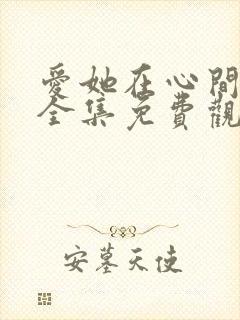 愛她在心間
全集免費觀
安墓天使